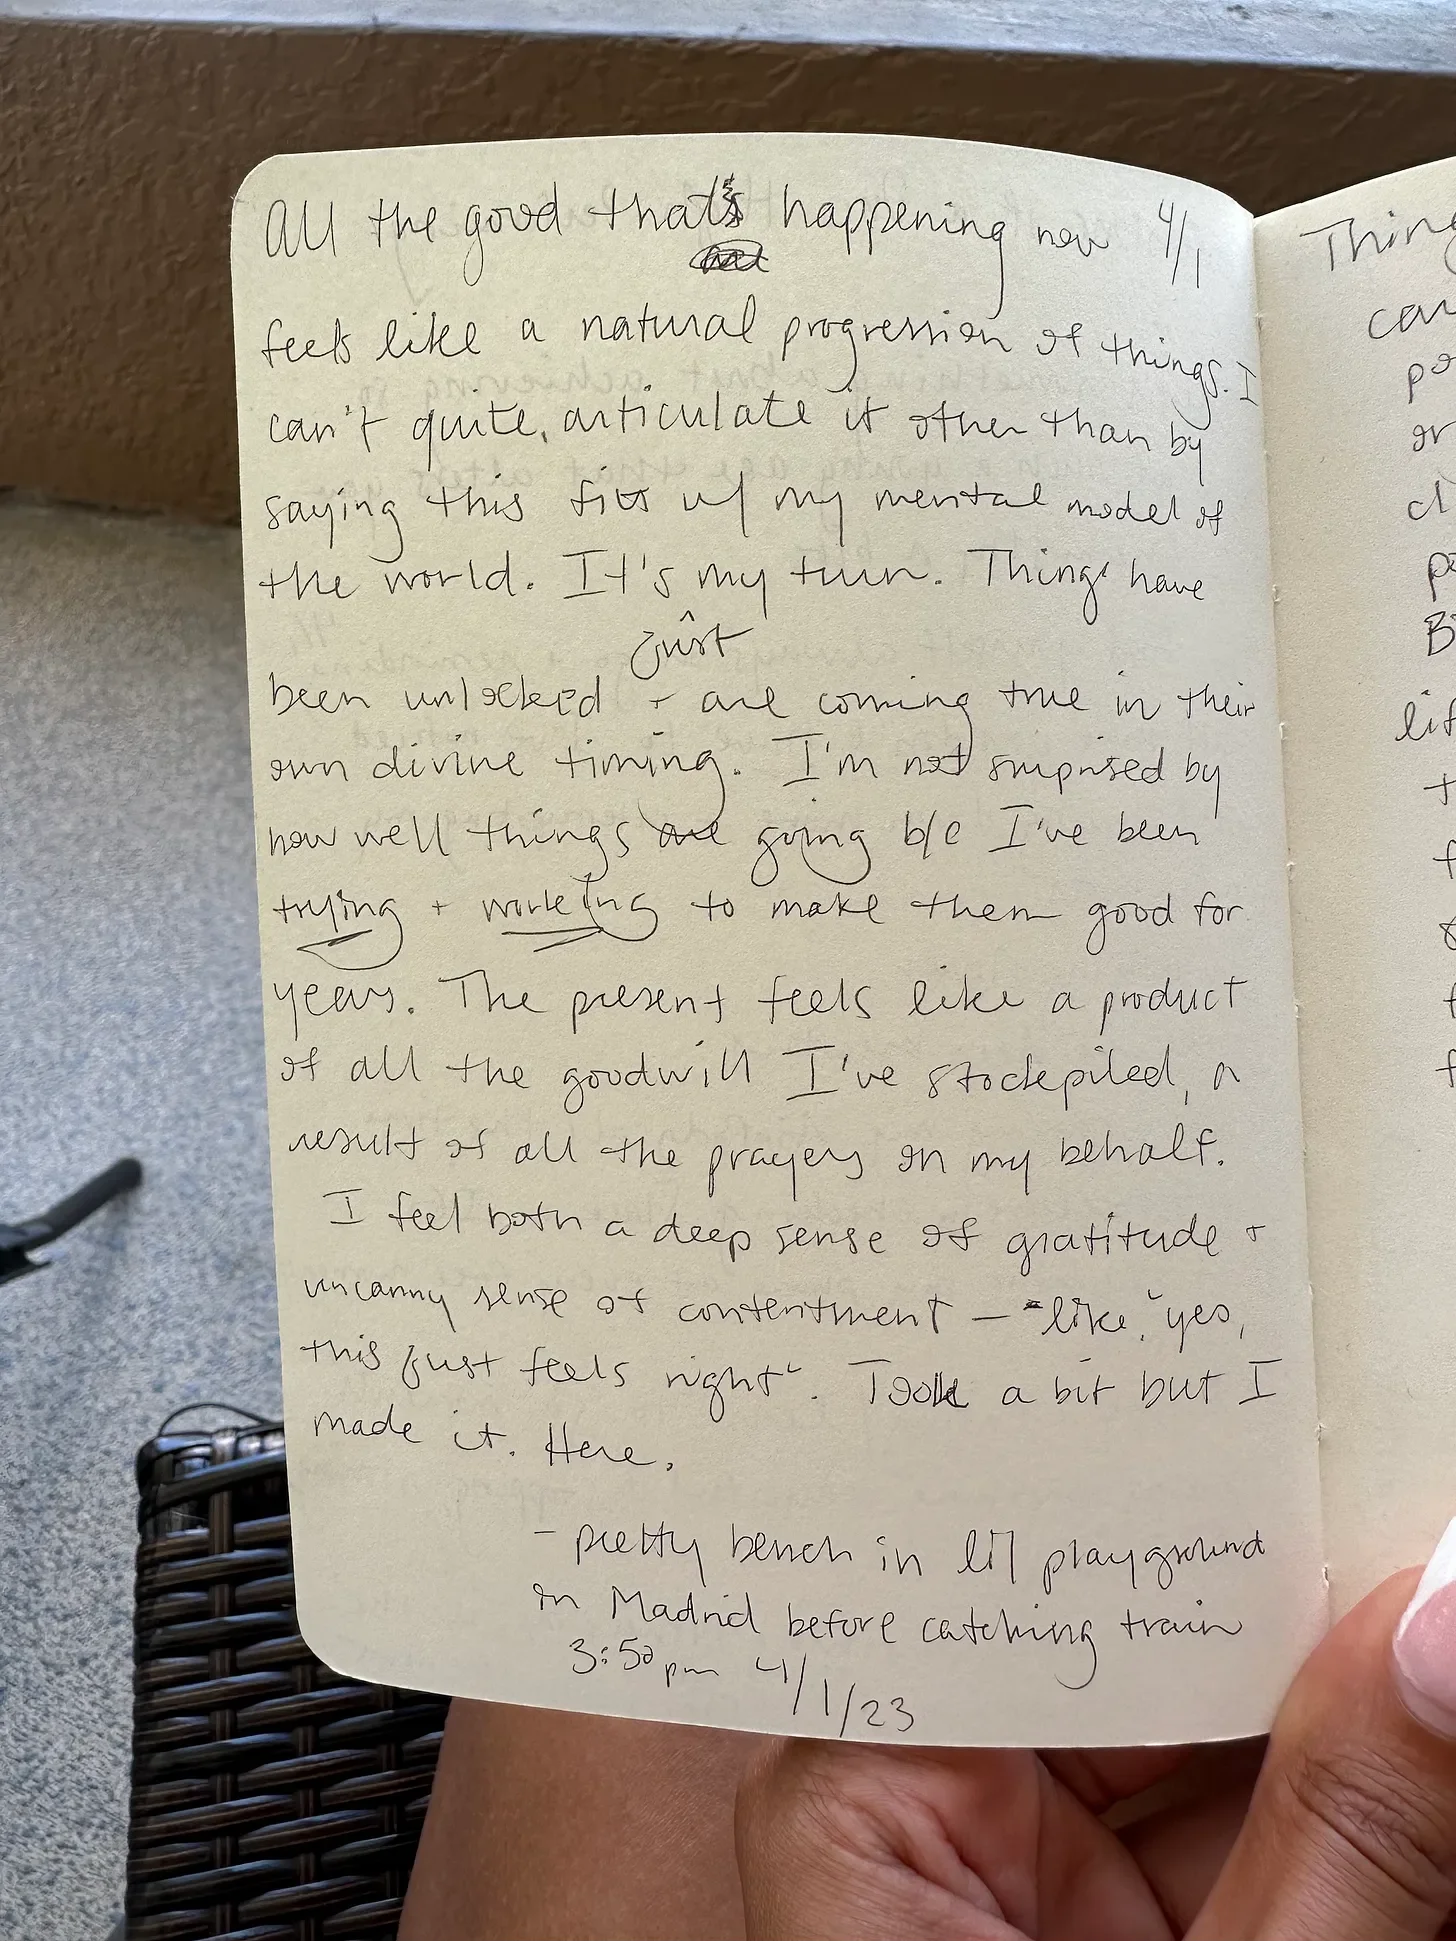 All the good that's happening now 4/1
feels like a natural progression of things. I
can't quite, articulate it other than by
saying this fits w/ my mental model of
the world. It's my turn. Things have
just
been unlocked + are coming true in their
own divine timing. I'm not surprised by
how well things are going b/c I've been
trying + working to make them good for
years. The present feels like a product
of all the goodwill I've stockpiled, a
result of all the prayers on my behalf.
I feel both a deep sense of gratitude +
uncanny sense of contentment – "like, "yes,
this just feels right". Took a bit but I
made it. Here.
- pretty bench in lil playground
in Madrid before catching train
3:50 pm 4/1/23
Thing
can
po
or
cl
B
lif